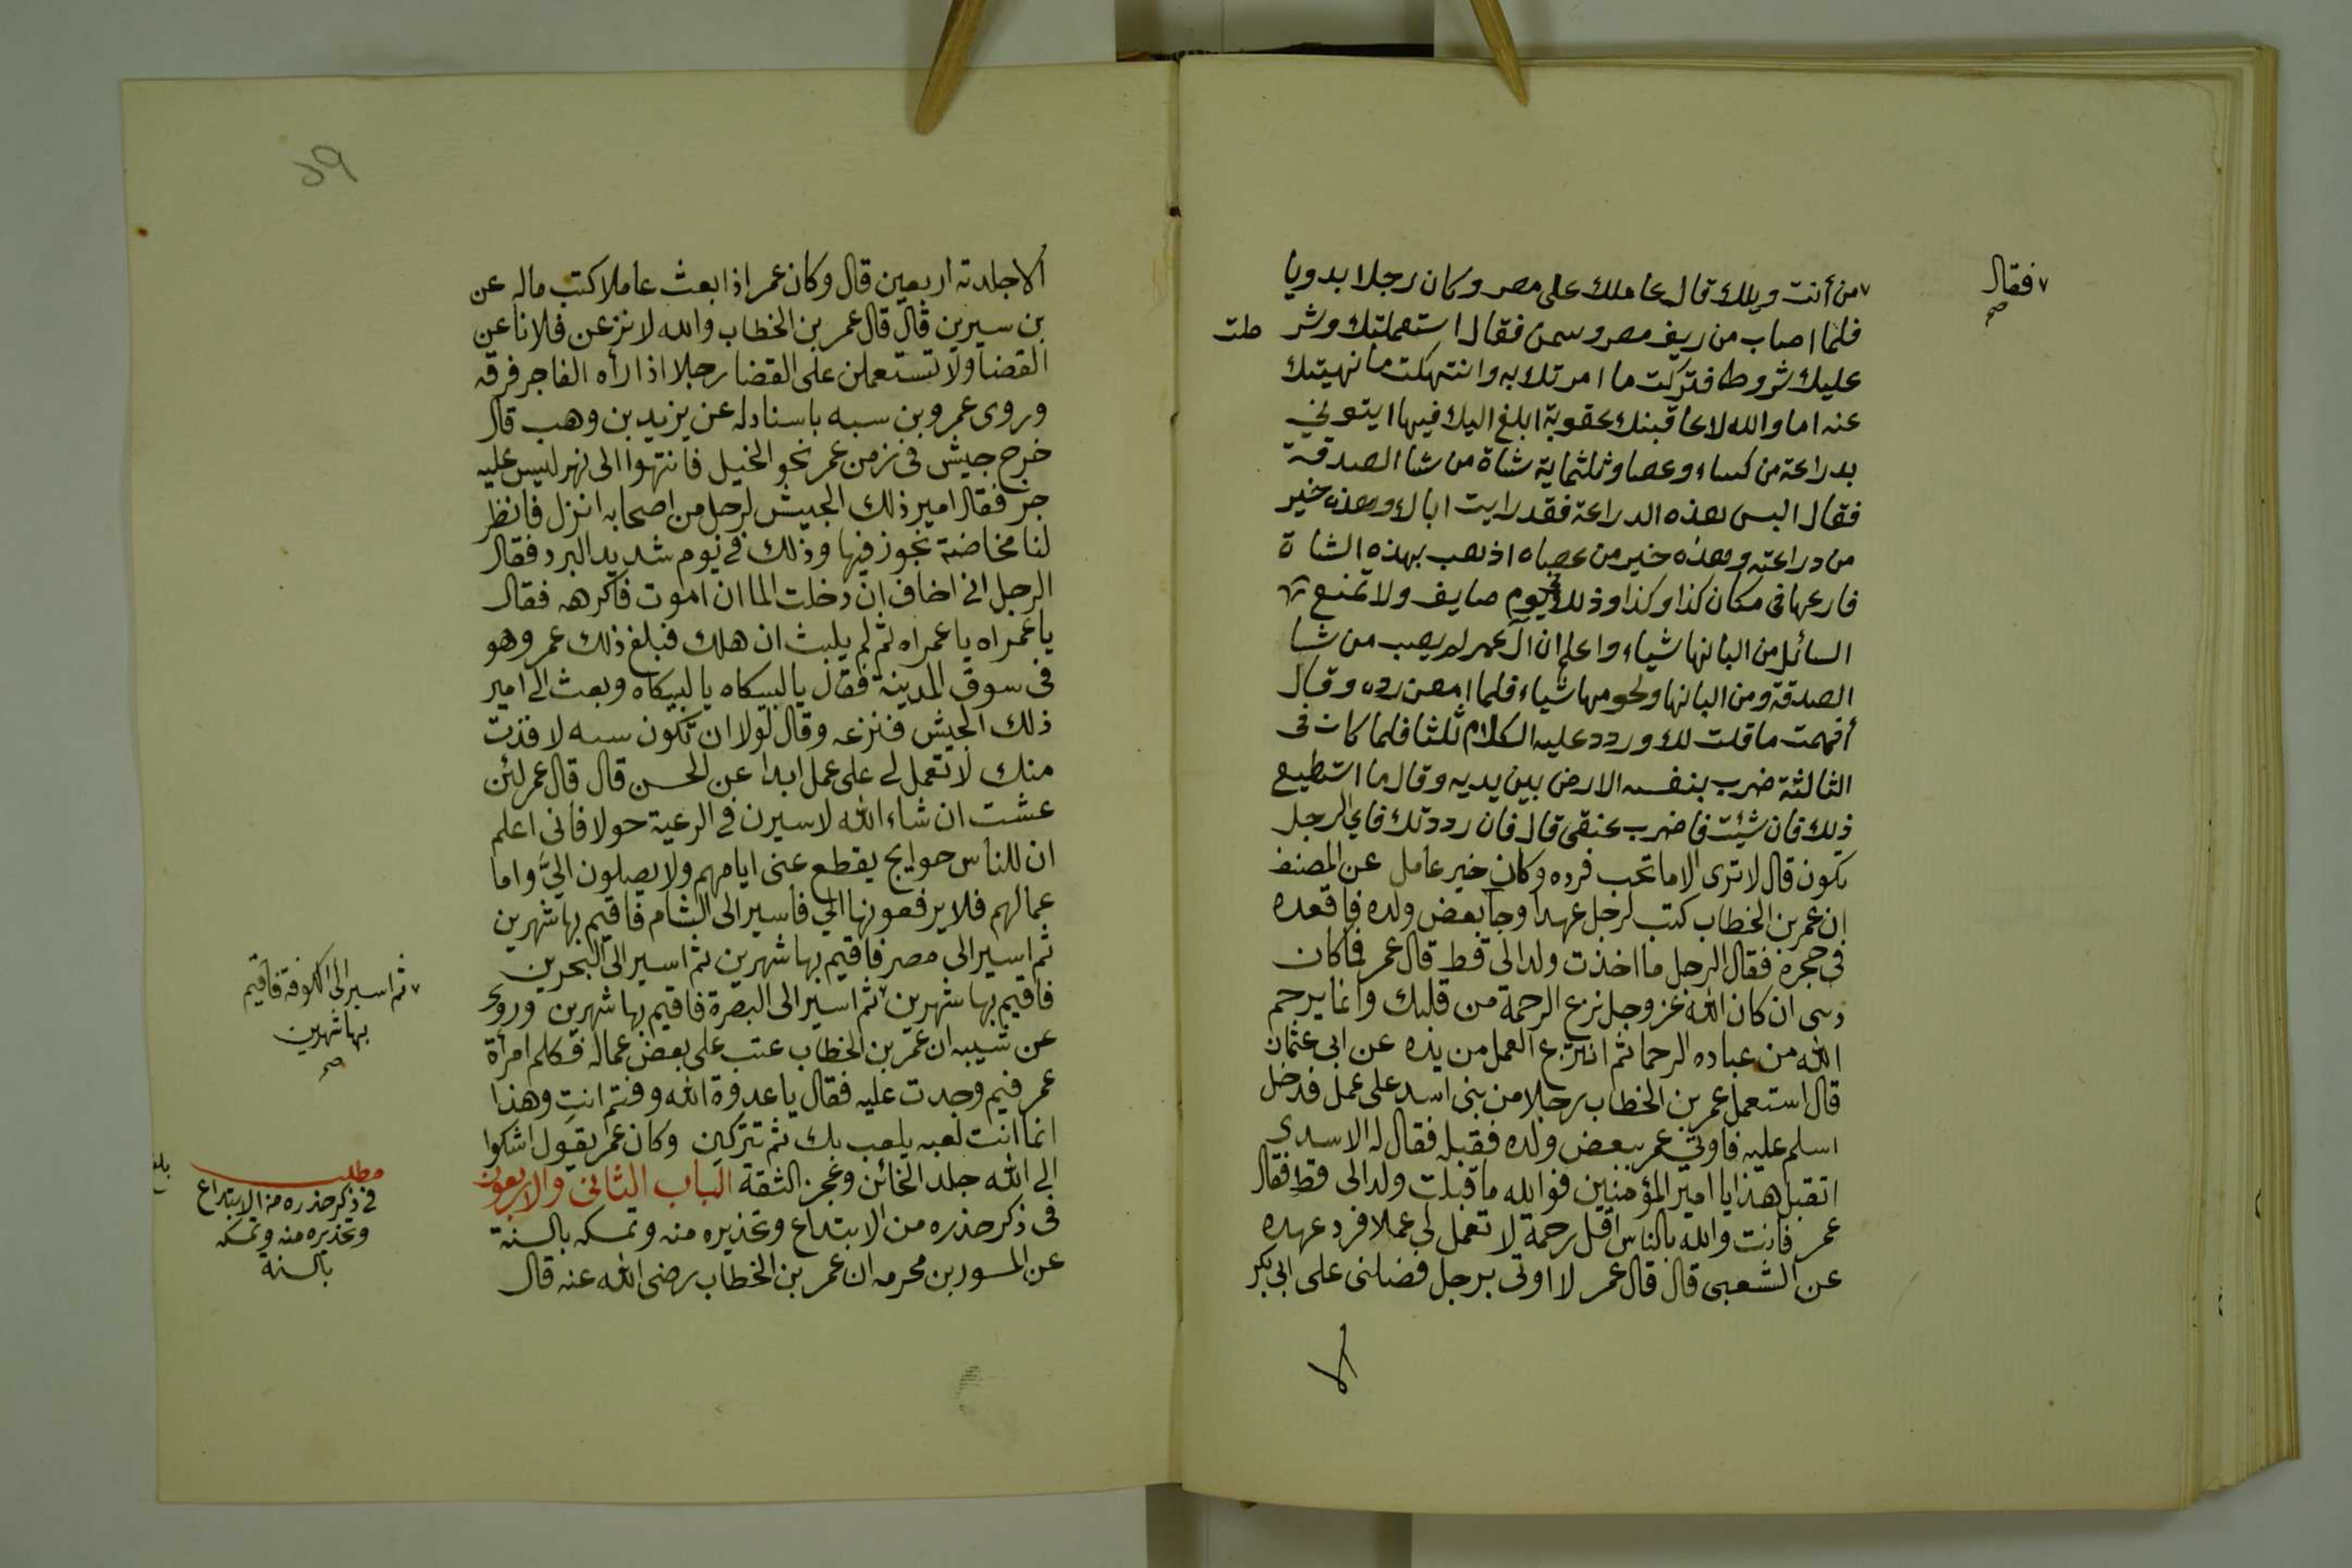 فقال
صح
من أنت ويلك قال عاملك على مصر وكان رجلا بدويا
فلما اصاب من ريف مصر وسمن فقال استعملتك وشر طت
عليك شروط فتركت ما امرتك به وانتهكت ما نهيتك
عنه اما والله لاعاقبنك عقوبة ابلغ اليك فيها ايتوني
بدراعة من كساء وعصا وثلثماية شاة من شا الصدقة
فقال البس هذه الدراعة فقد رايت اباك وهذه خير
من دراعته وهذه خير من عصاه اذهب بهذه الشاة
فارعها في مكان كذا وكذا وذلك في يوم صايف ولا تمنع
السائل من البانها شياء واعلم ان آل عمر لم يصب من شا
الصدقة ومن البانها ولحومها شياء فلما امعن رده وقال
أفهمت ما قلت لك وردد عليه الكلام ثلثا فلما كان في
الثالثة ضرب بنفسه الارض بين يديه وقال ما استطيع
ذلك فان شيئت فاضرب عنقى قال فان رددتك فاي الرجل
يكون قال لا ترى الا ما تحب فرده وكان خير عامل عن المصنف
ان عمر بن الخطاب كتب لرجل عهدا وجا بعض ولده فاقعده
في حجره فقال الرجل ما اخذت ولدا لى قط قال عمر فما كان
دسى ان كان الله عز وجل نزع الرحمة من قلبك وانما يرحم
الله من عباده الرحما ثم انتزع العمل من يده عن ابى عثمان
قال استعمل عمر بن الخطاب رجلا من بنى اسد على عمل فدخل
اسلم عليه فاوتي عمر ببعض ولده فقبله فقال له الاسدي
اتقبل هذا يا امير المؤمنين فوالله ما قبلت ولدا لى قط فقال
عمر فانت والله بالناس اقل رحمة لا تعمل لى عملا فرد عهده
عن الشعبى قال قال عمر لا اوتى برجل فضلنى على ابى بكر
الا
59
الا جلدته اربعين قال وكان عمر اذا بعث عاملا كتب ماله عن
بن سيرين قال قال عمر بن الخطاب والله لانزعن فلانا عن
القضا ولا تستعملن على القضا رجلا اذا رأه الفاجر فرقه
وروى عمرو بن سبه باسناد له عن يزيد بن وهب قال
خرج جيش فى زمن عمر نحو الخيل فانتهوا الى نهر ليس عليه
جز فقال امير ذلك الجيش لرجل من اصحابه انزل فانظر
لنا مخاضة نجوز فيها وذلك في يوم شديد البرد فقال
الرجل انى اخاف ان دخلت الما ان اموت فاكرهه فقال
يا عمراه يا عمراه ثم لم يلبث ان هلك فبلغ ذلك عمر وهو
فى سوق المدينة فقال يا لبيكاه يا لبيكاه وبعث الى امير
ذلك الجيش فنزعه وقال لولا ان تكون سبه لاقذت
منك لا تعمل لى على عمل ابدا عن الحسن قال قال عمر لئن
عشت ان شاء الله لاسيرن في الرعية حولا فانى اعلم
ان للناس حوايج يقطع عنى ايامهم ولا يصلون اليّ واما
عمالهم فلا يرفعونها الي فاسير الى الشام فاقيم بها شهرين
ثم اسير الى مصر فاقيم بها شهرين ثم اسير الى البحرين
فاقيم بها شهرين ثم اسير الى البصرة فاقيم بها شهرين وروى
ثم اسير الى الكوفة فاقيم
بها شهرين
صح
عن شيبه ان عمر بن الخطاب عتب على بعض عماله فكلم امرأة
عمر فيم وجدت عليه فقال يا عدوة الله وفنتم انت وهذا
انما انت لعبه يلعب بك ثم تتركين وكان عمر يقول اشكوا
الى الله جلد الخائن وعجز الثقة الباب الثانى والاربعون
فى ذكر حذره من الابتداع وتحذيره منه وتمسكه بالسنة
عن المسور بن محرمه ان عمر بن الخطاب رضى الله عنه قال
مطلب
فى ذكر حذره من الابتداع
وتحذيره منه وتمسكه
بالسنة